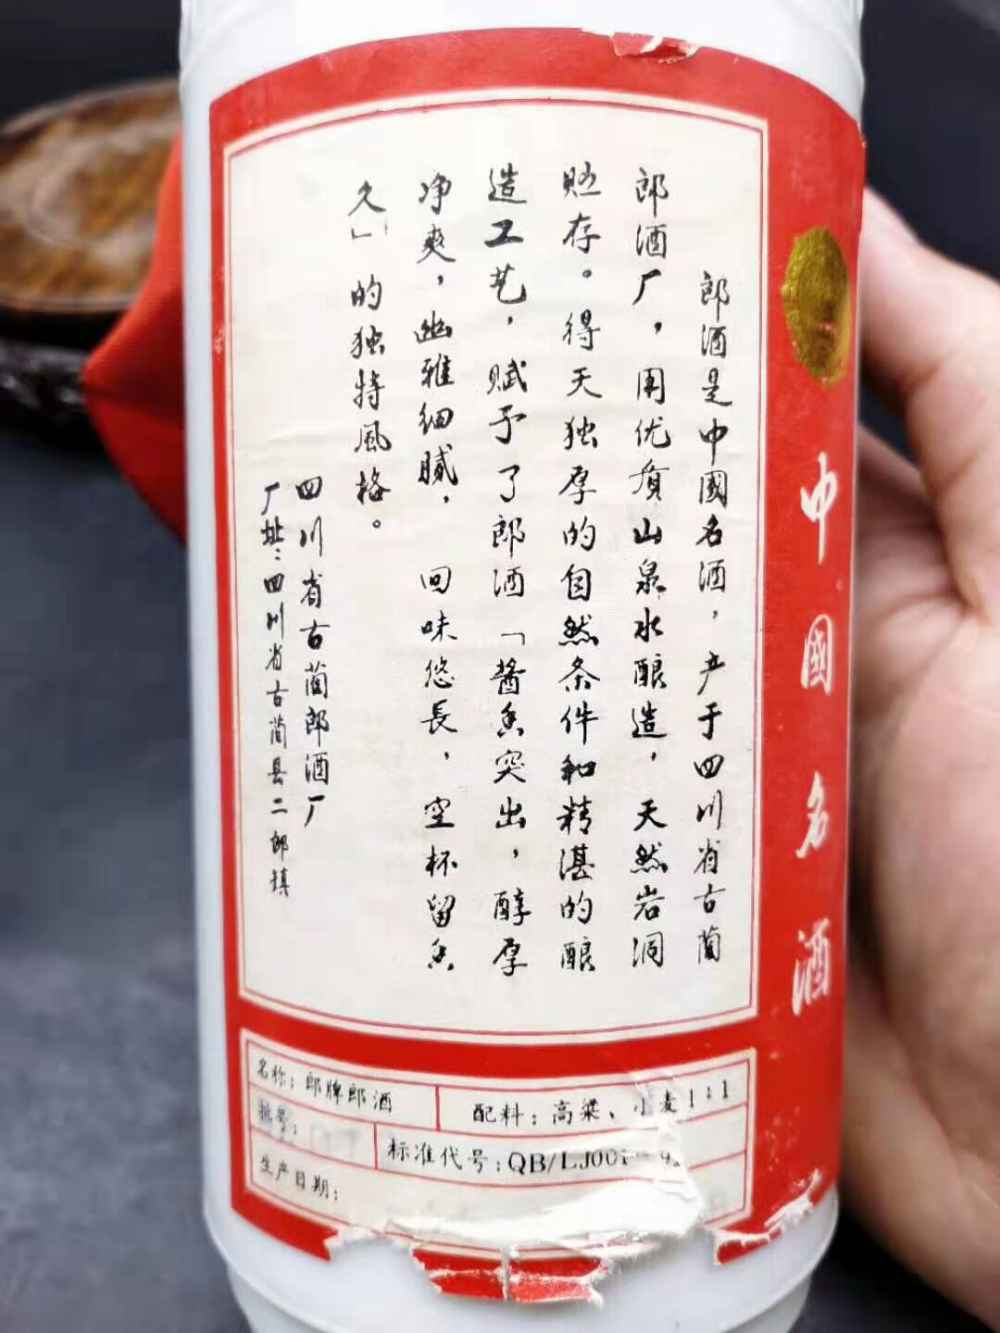 郎酒是中國名酒，产于四川省古蔺
郎酒厂，用优质山泉水酿造，天然岩洞
贮存。得天独厚的自然条件和精湛的酿
造工艺，赋予了郎酒「酱香突出，醇厚
净爽，幽雅细腻，回味悠長，空杯留香
久」的独特風格。
四川省古蔺郎酒厂
厂址：四川省古蔺县二郎镇
中國名酒
名称：郎牌郎酒
配料：高粱、小麦1：1
批号：
标准代号：QB/LJ001
生产日期：